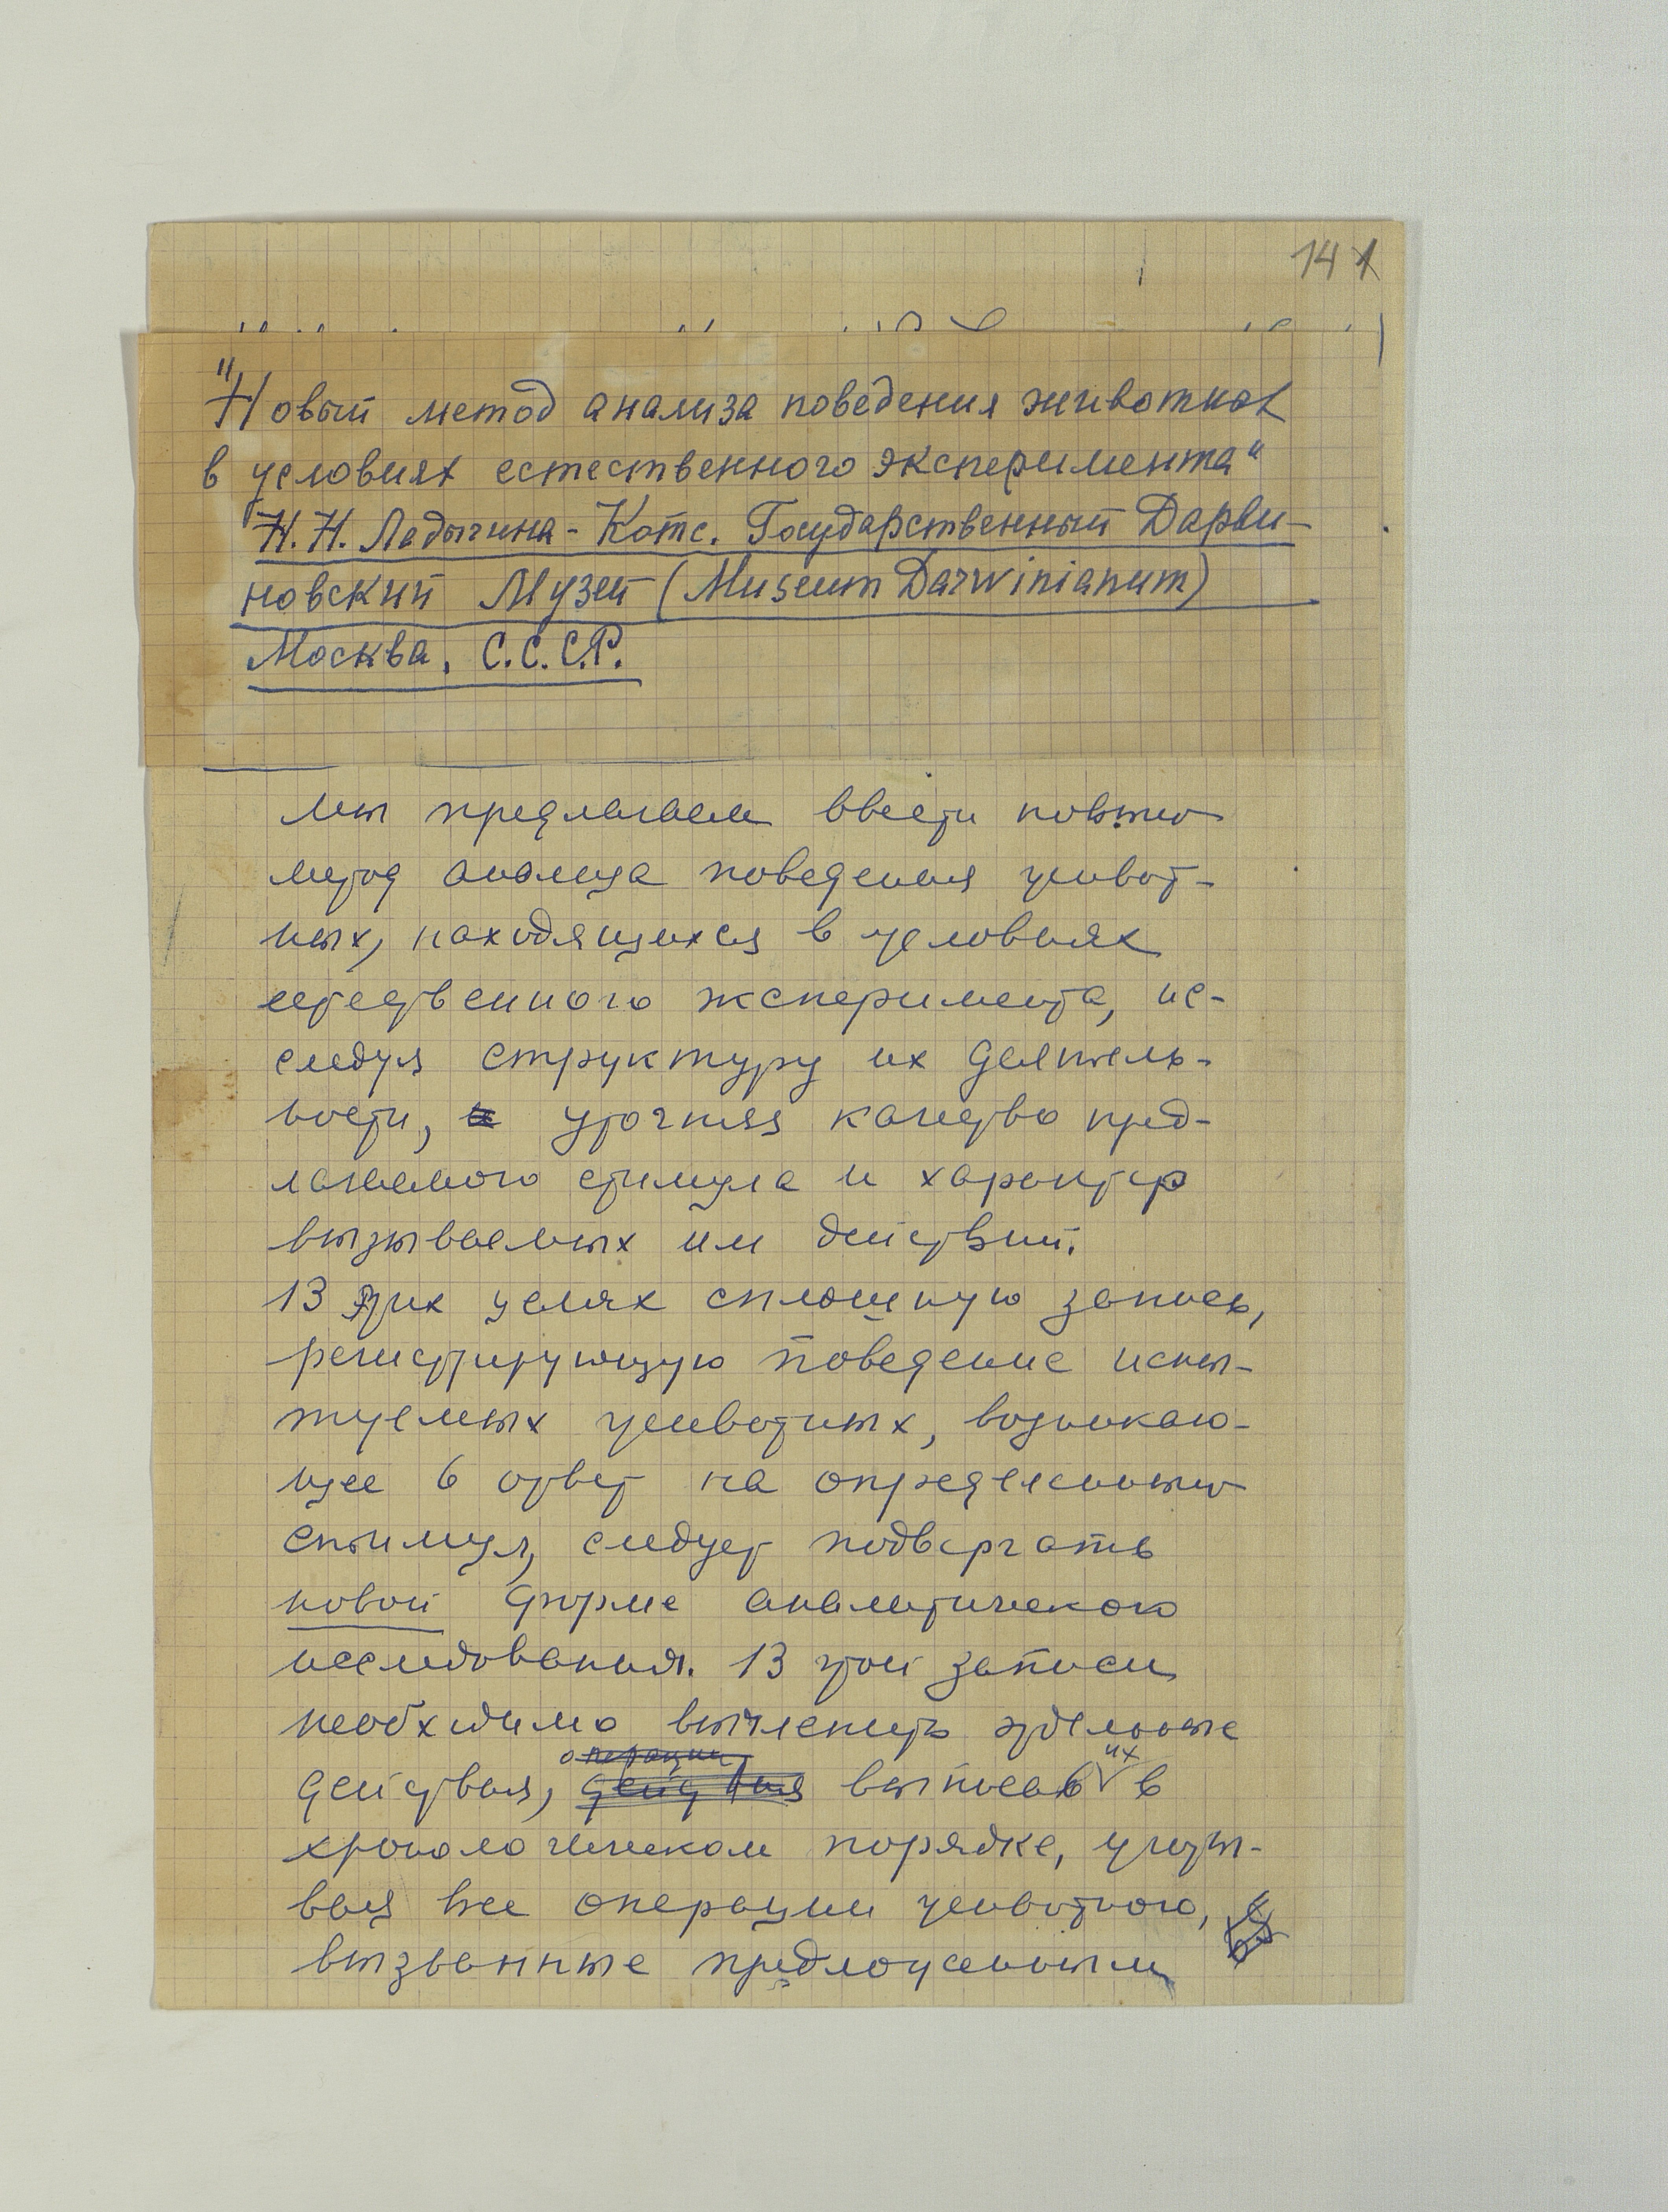 14 1
"Новый метод анализа поведения животных
в условиях естественного эксперимента"
Н.Н. Ладыгина-Котс. Государственный Дарви-
новский Музей (Museum Darwinianum)
Москва. С.С.С.Р.
Мы предлагаем ввести новый
метод анализа поведения живот-
ных, находящихся в условиях
естественного эксперимента, ис-
следуя структуру их деятель-
ности, и уточняя качество пред-
лагаемого стимула и характер
вызываемых им действий.
В этих целях сплошную запись,
регистрирующую поведение испы-
туемых животных, возникаю-
щее в ответ на определенный
стимул, следует подвергать
новой форме аналитического
исследования. В этой записи
необходимо вычленить отдельные
операции их
действия, действия выписав в
хронологическом порядке, учиты-
вая все операции животного,
вызванные предложенным